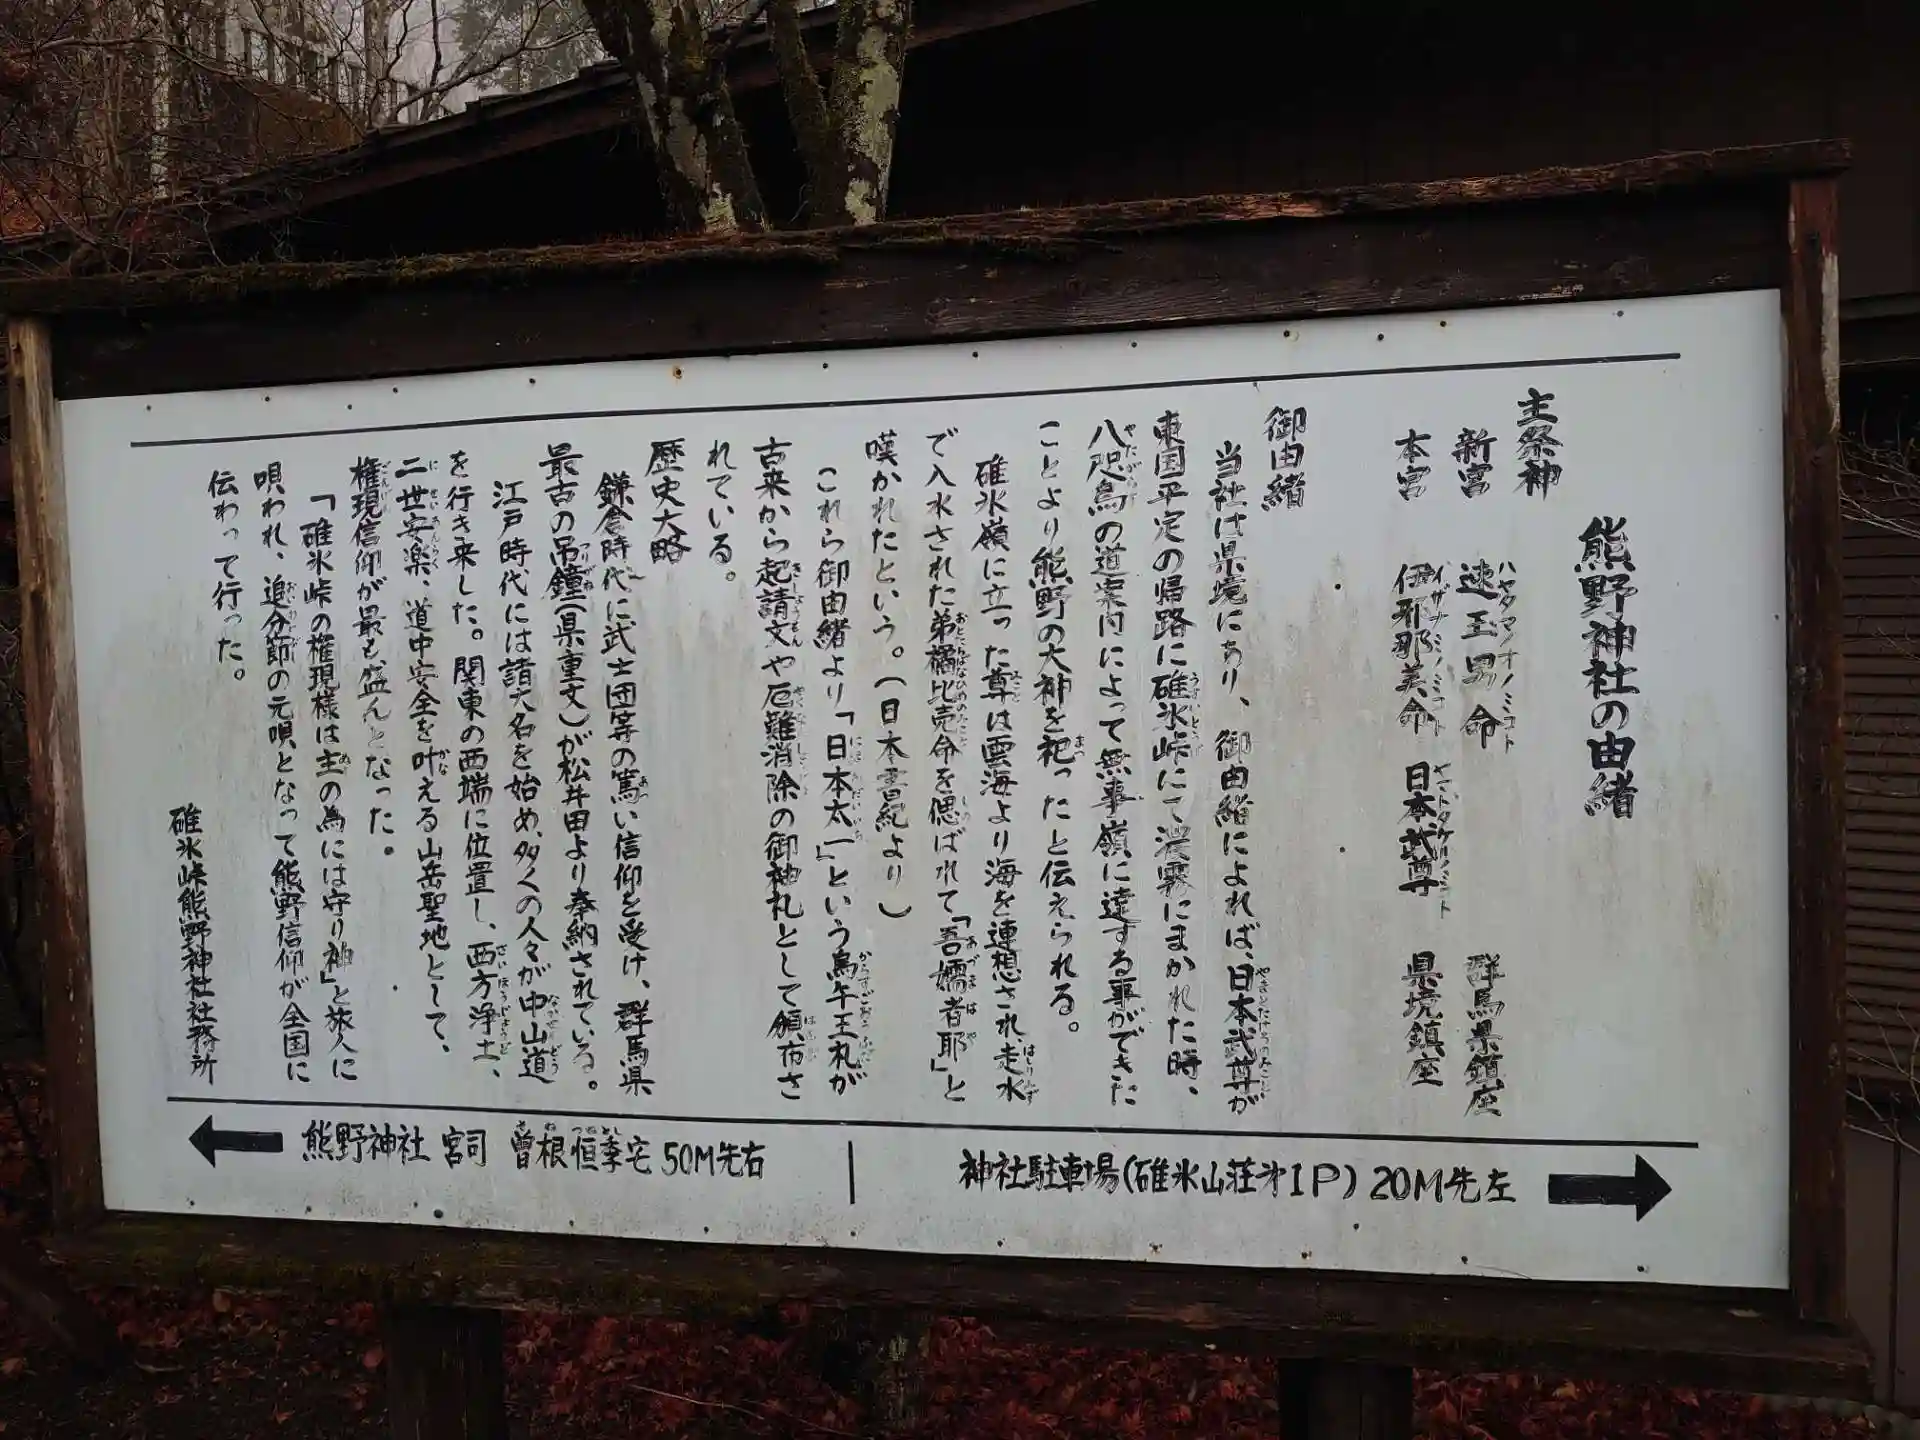 熊野神社の由緒
主祭神
新宮 速玉男命 群馬県鎮座
ハヤタマノオノミコト
本宮 伊邪那美命 日本武尊 県境鎮座
イザナミノミコト ヤマトタケルノミコト
御由緒
当社は県境にあり、御由緒によれば、日本武尊が
東国平定の帰路に碓氷峠にて濃霧にまかれた時、
八咫烏の道案内によって無事嶺に達する事ができた
ことより熊野の大神を祀ったと伝えられる。
碓氷嶺に立った尊は雲海より海を連想され、走水
で入水された弟橘比売命を偲ばれて「吾嬬者耶」と
嘆かれたという。(日本書紀より)
これら御由緒より「日本太一」という烏午王札が
古来から起請文や厄難消除の御神札として頒布さ
れている。
歴史大略
鎌倉時代に武士団等の篤い信仰を受け、群馬県
最古の吊鐘(県重文)が松井田より奉納されている。
江戸時代には諸大名を始め、多くの人々が中山道
を行き来した。関東の西端に位置し、西方浄土、
二世安楽、道中安全を叶える山岳聖地として、
権現信仰が最も盛んとなった。
「碓氷峠の権現様は主の為には守り神」と旅人に
唄われ、追分節の元唄となって熊野信仰が全国に
伝わって行った。
碓氷峠熊野神社社務所
← 熊野神社 宮司 曽根恒季宅 50M先右
神社駐車場(碓氷山荘㐧1P) 20M先左 →